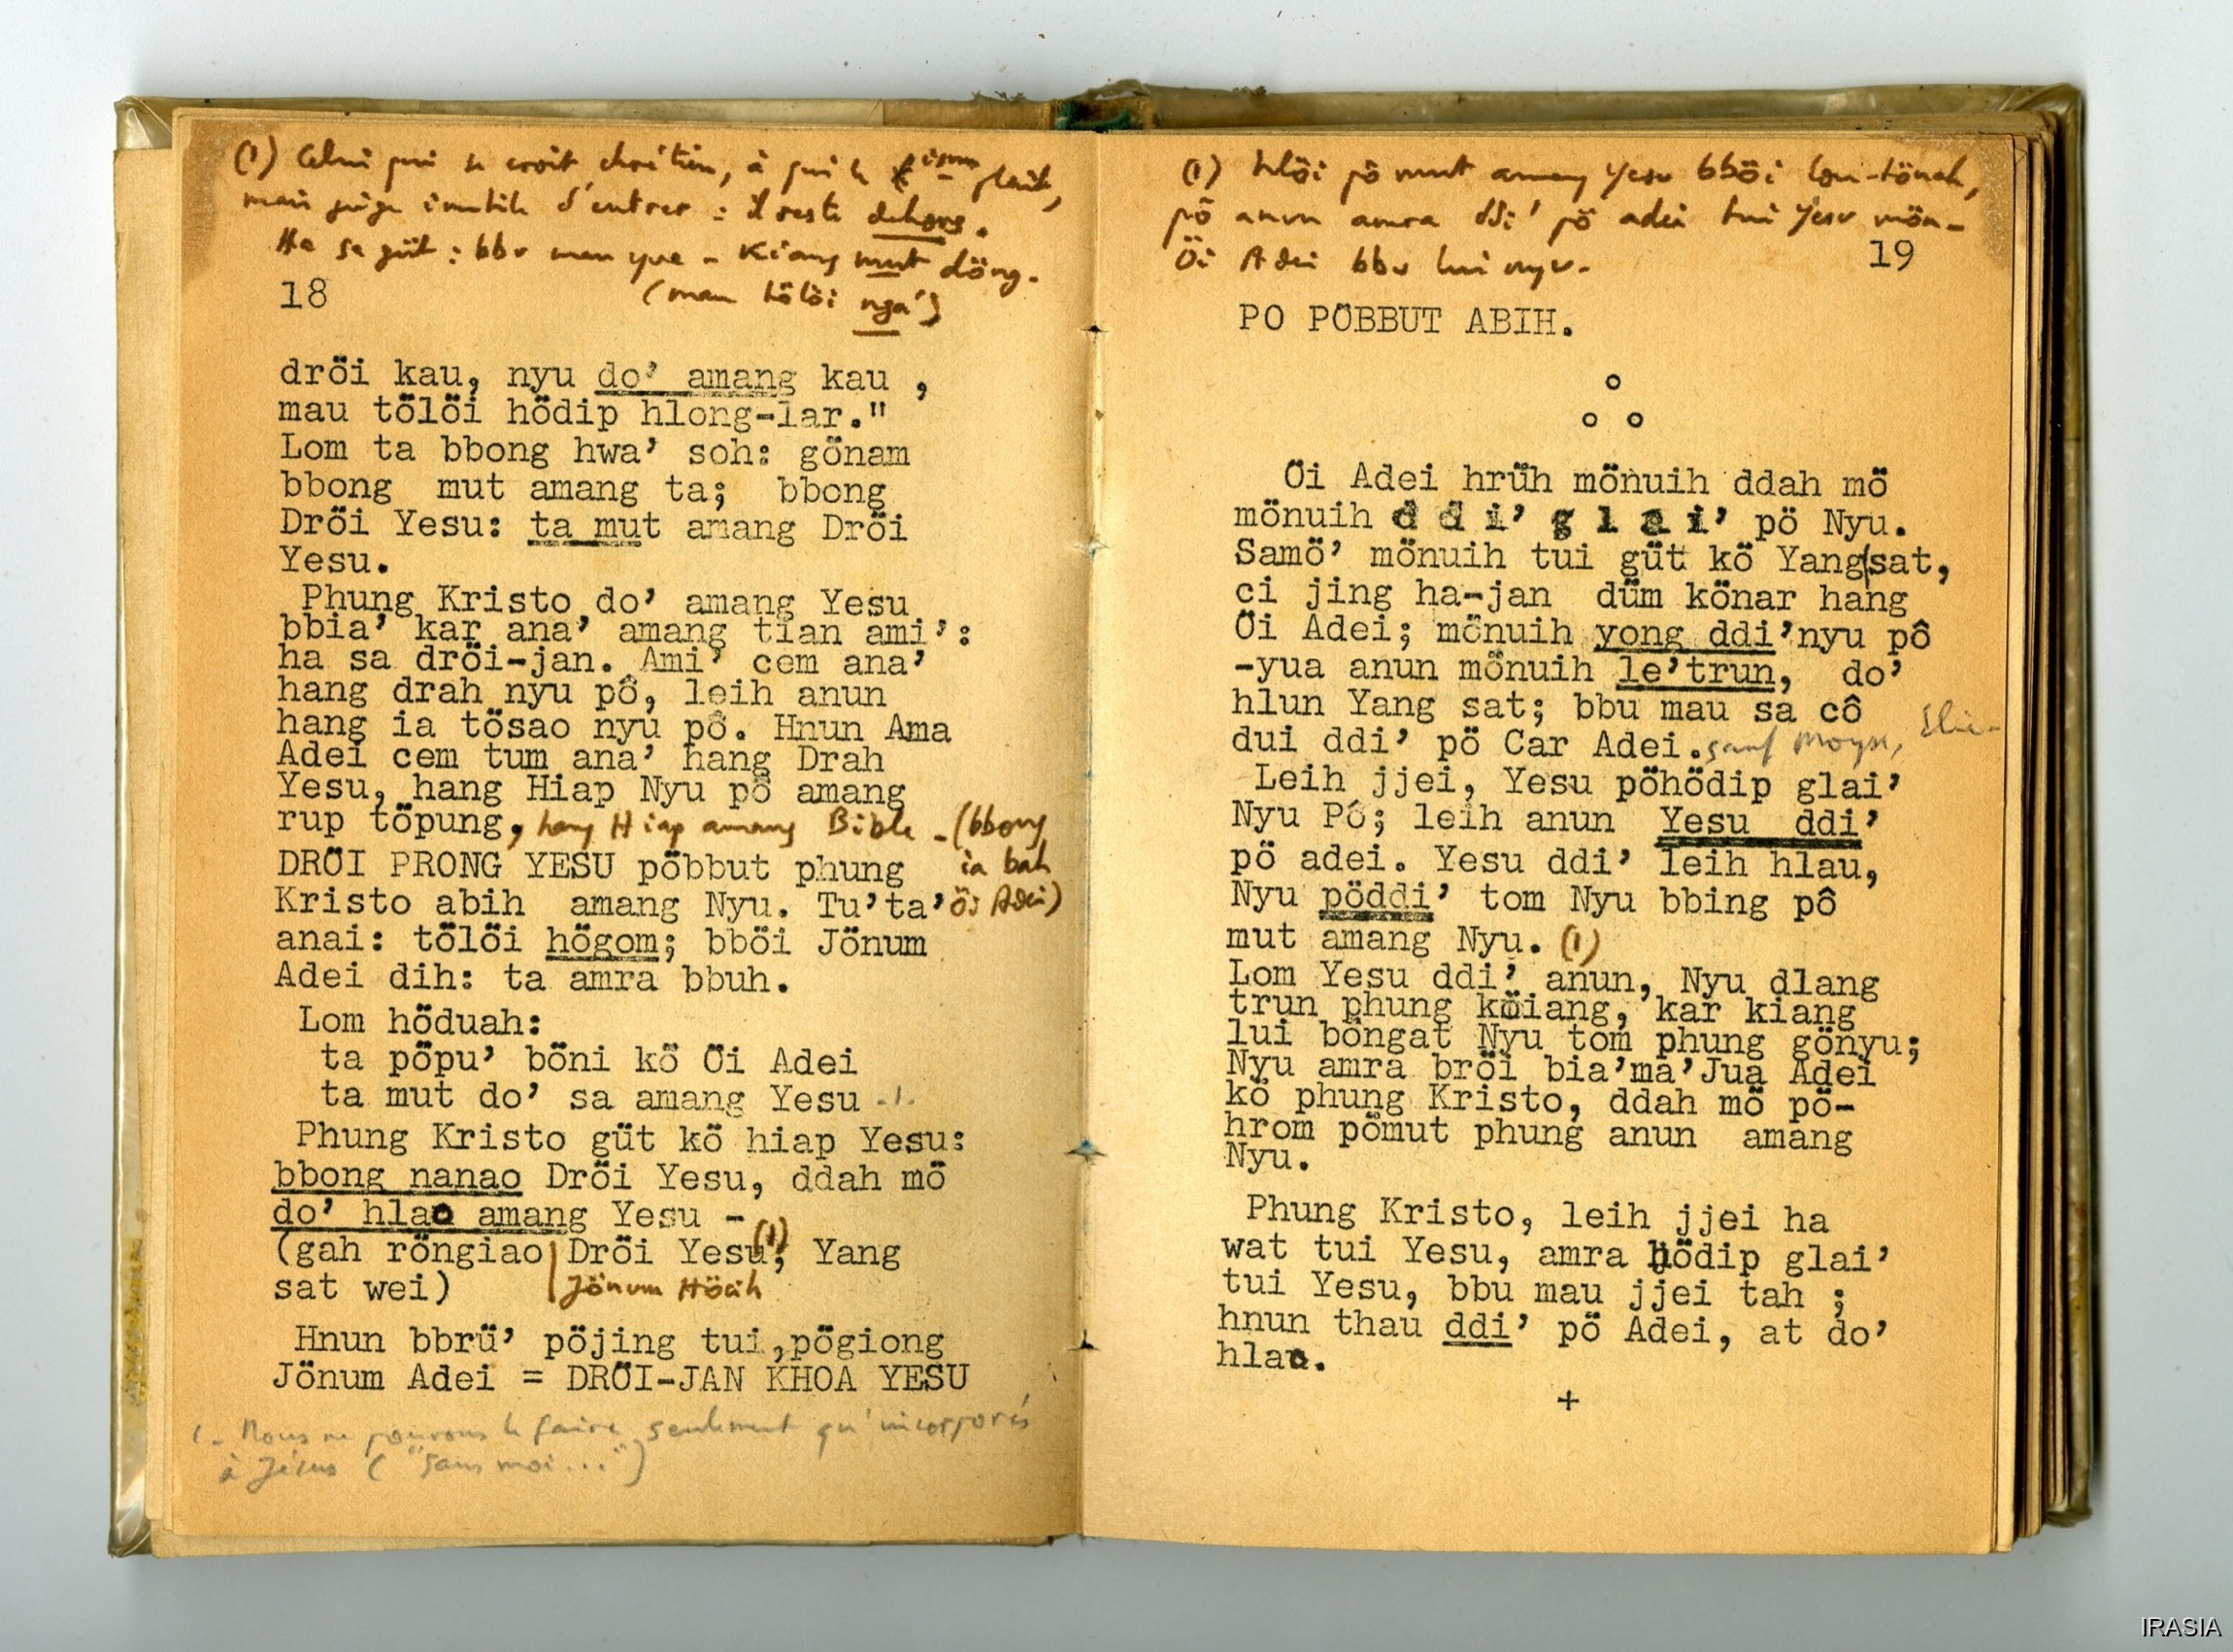 (1) Celui qui se croit chrétien, à qui le Xisme plaît,
mais juge inutile d'entrer : il reste dehors.
Ha sa güt : bbu mau yua - Kiang mut döng.
(mau tölöi nga')
18
dröi kau, nyu do’ amang kau ,
mau tölöi hödip hlong-lar."
Lom ta bbong hwa’ soh: gönam
bbong mut amang ta; bbong
Dröi Yesu: ta mut amang Dröi
Yesu.
Phung Kristo do’ amang Yesu
bbia’ kar ana’ amang tian ami’:
ha sa dröi-jan. Ami’ cem ana’
hang drah nyu pô, leih anun
hang ia tösao nyu pô. Hnun Ama
Adei cem tum ana’ hang Drah
Yesu, hang Hiap Nyu pô amang
rup töpung, hang Hiap amang Bible - (bbong
ia bah
Öi Adei)
DRÖI PRONG YESU pöbbut phung
Kristo abih amang Nyu. Tu’ta’
anai: tölöi högom; bböi Jönum
Adei dih: ta amra bbuh.
Lom höduah:
ta pöpu’ böni kö Öi Adei
ta mut do’ sa amang Yesu -1.
Phung Kristo güt kö hiap Yesu:
bbong nanao Dröi Yesu, ddah mö
do’ hlao amang Yesu -
(gah röngiao Dröi Yesu(1); Yang
sat wei) Jönum Höcih
Hnun bbrü’ pöjing tui,pögiong
Jönum Adei = DRÖI-JAN KHOA YESU
1 - Nous ne pouvons le faire seulement qu'incorporés
à Jésus ("Sans moi...")
(1) tölöi pô mut amang Yesu bböi lon-tönah,
pô anun amra ddi' pö adei tui Yesu mön-
Öi Adei bbu lui nyu-
19
PO PÖBBUT ABIH.
Öi Adei hrüh mönuih ddah mö
mönuih d d i’ g l a i’ pö Nyu.
Samö’ mönuih tui güt kö Yang sat,
ci jing ha-jan düm könar hang
Öi Adei; mönuih yong ddi’nyu pô
-yua anun mönuih le’trun, do’
hlun Yang sat; bbu mau sa cô
dui ddi’ pö Car Adei. sauf Moyse, Elie-
Leih jjei, Yesu pöhödip glai’
Nyu Pô; leih anun Yesu ddi’
pö adei. Yesu ddi’ leih hlau,
Nyu pöddi’ tom Nyu bbing pô
mut amang Nyu. (1)
Lom Yesu ddi’ anun, Nyu dlang
trun phung köiang, kar kiang
lui böngat Nyu tom phung gönyu;
Nyu amra bröi bia’ma’Jua Adei
kö phung Kristo, ddah mö pö-
hrom pömut phung anun amang
Nyu.
Phung Kristo, leih jjei ha
wat tui Yesu, amra hödip glai’
tui Yesu, bbu mau jjei tah ;
hnun thau ddi’ pö Adei, at do’
hlao.
+
IRASIA